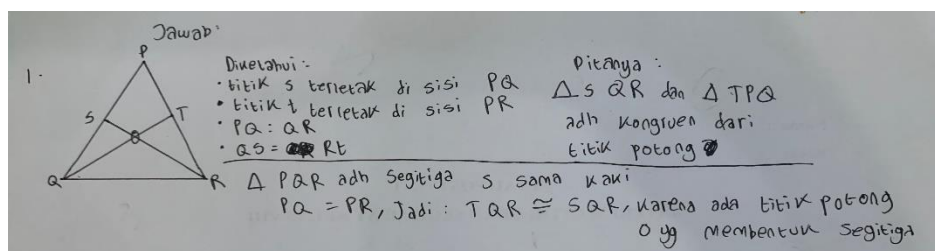 Jawab:
1.
P
S
T
O
Q
R
Diketahui :
• titik s terletak di sisi PQ
• titik t terletak di sisi PR
• PQ = QR
• QS = Rt
Ditanya :
Δ S QR dan Δ TPQ
adh kongruen dari
titik potong
Δ PQR adh Segitiga s sama kaki
PQ = PR, Jadi : TQR ≅ SQR, karena ada titik potong
O yg membentuk segitiga